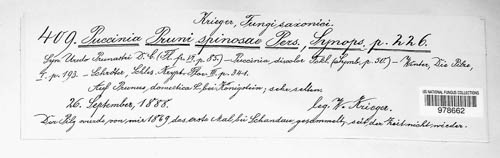 Krieger, Fungi saxonici.
409. Puccinia Pruni spinosae Pers., Synops. p. 226.
Syn. Uredo Prunastri D. C. (Fl. p. 85) – Puccinia discolor Fckl. (Symb. p. 50) – Winter, Die Pilze,
I. p. 193. – Schröter, Schles. Krypt. Flor. III. p. 341.
Auf Prunus domestica L. bei Königstein, sehr selten
26. September, 1888. leg. W. Krieger.
Der Pilz wurde von mir 1869 das erste Mal bei Schandau gesammelt, seit der Zeit nicht wieder.
US NATIONAL FUNGUS COLLECTIONS
978662